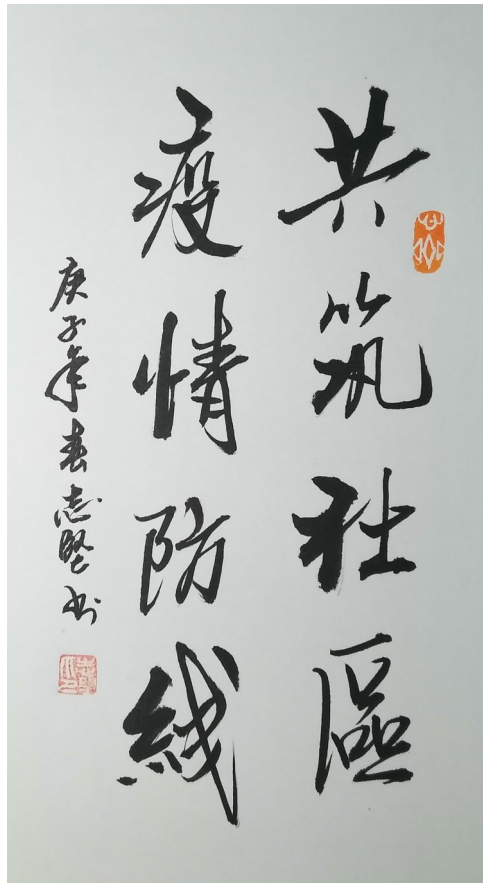 共筑社區
疫情防线
庚子年春志堅书